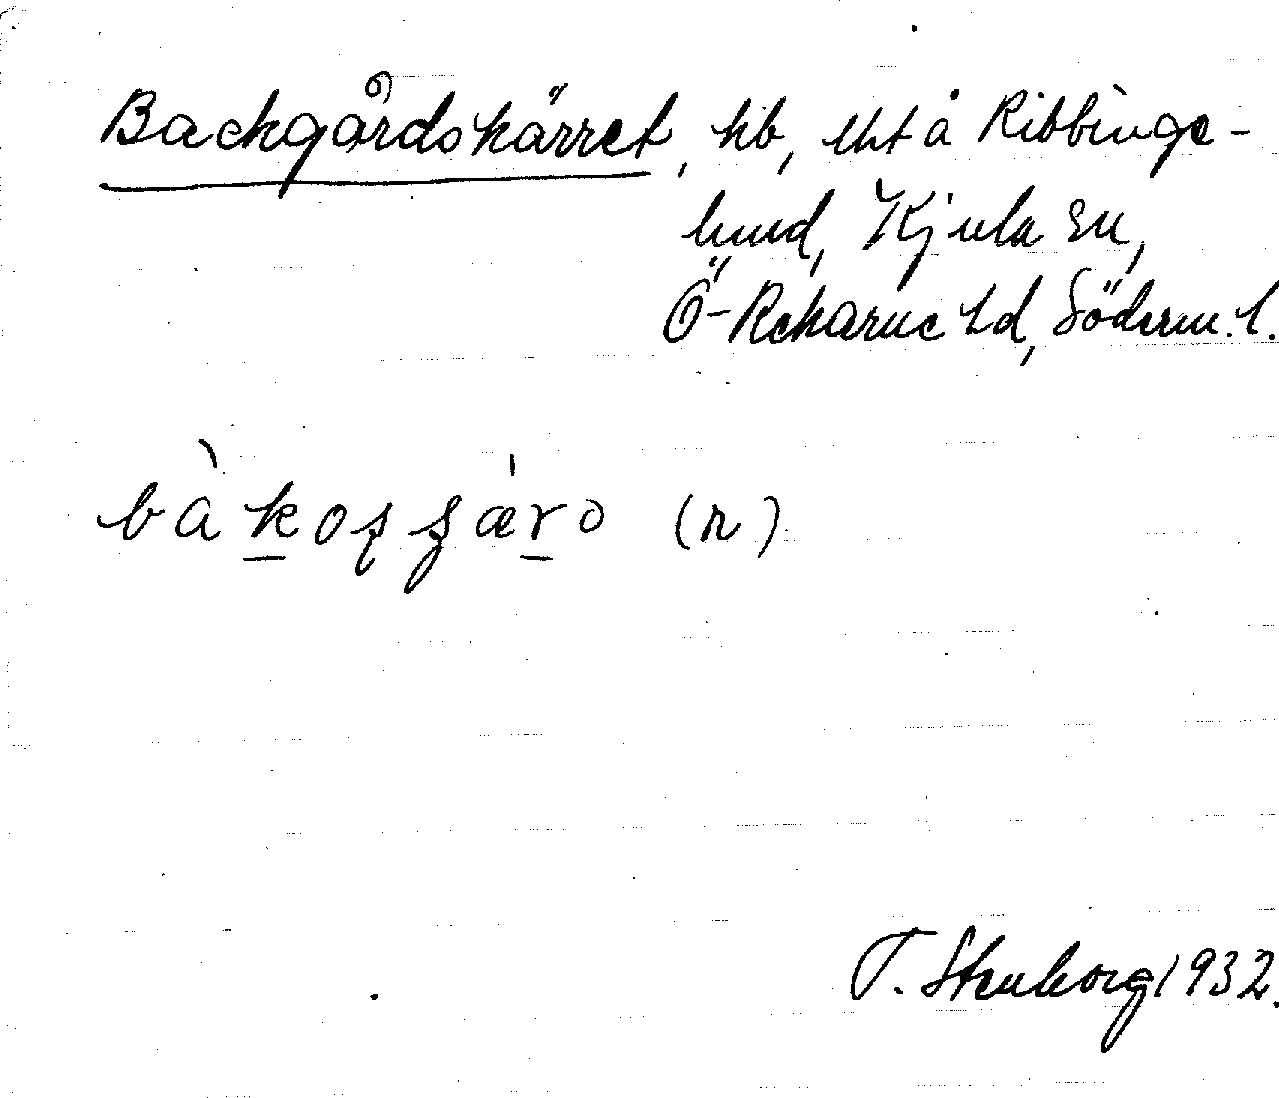 Backgårdskärret, kb, tkt å Ribbinge-
lund, Kjula sn,
Ö-Rekarne hd, Söderm. l.
bàkosʂæ̀ro (n)
T. Stenborg 1932.